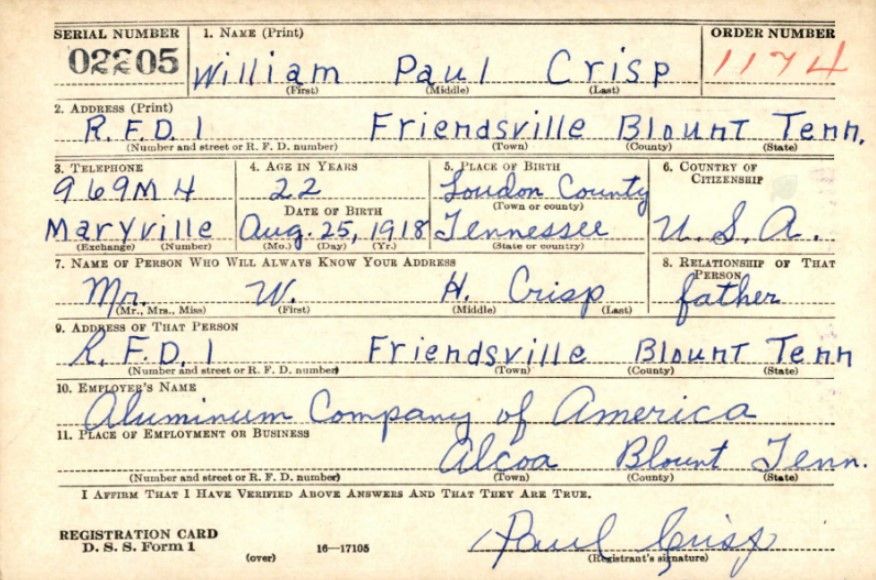 SERIAL NUMBER 1. NAME (Print) ORDER NUMBER
02205 William Paul Crisp 1174
(First) (Middle) (Last)
2. ADDRESS (Print)
R.F.D. 1 Friendsville Blount Tenn.
(Number and street or R. F. D. number) (Town) (County) (State)
3. TELEPHONE 4. AGE IN YEARS 5. PLACE OF BIRTH 6. COUNTRY OF CITIZENSHIP
969M4 22 Loudon County
DATE OF BIRTH (Town or county)
Maryville Aug. 25, 1918 Tennessee U.S.A.
(Exchange) (Number) (Mo.) (Day) (Yr.) (State or country)
7. NAME OF PERSON WHO WILL ALWAYS KNOW YOUR ADDRESS 8. RELATIONSHIP OF THAT PERSON
Mr. W. H. Crisp father
(Mr., Mrs., Miss) (First) (Middle) (Last)
9. ADDRESS OF THAT PERSON
R.F.D. 1 Friendsville Blount Tenn
(Number and street or R. F. D. number) (Town) (County) (State)
10. EMPLOYER'S NAME
Aluminum Company of America
11. PLACE OF EMPLOYMENT OR BUSINESS
Alcoa Blount Tenn.
(Number and street or R. F. D. number) (Town) (County) (State)
I AFFIRM THAT I HAVE VERIFIED ABOVE ANSWERS AND THAT THEY ARE TRUE.
REGISTRATION CARD Paul Crisp
D. S. S. Form 1 (over) 16—17105 (Registrant's signature)